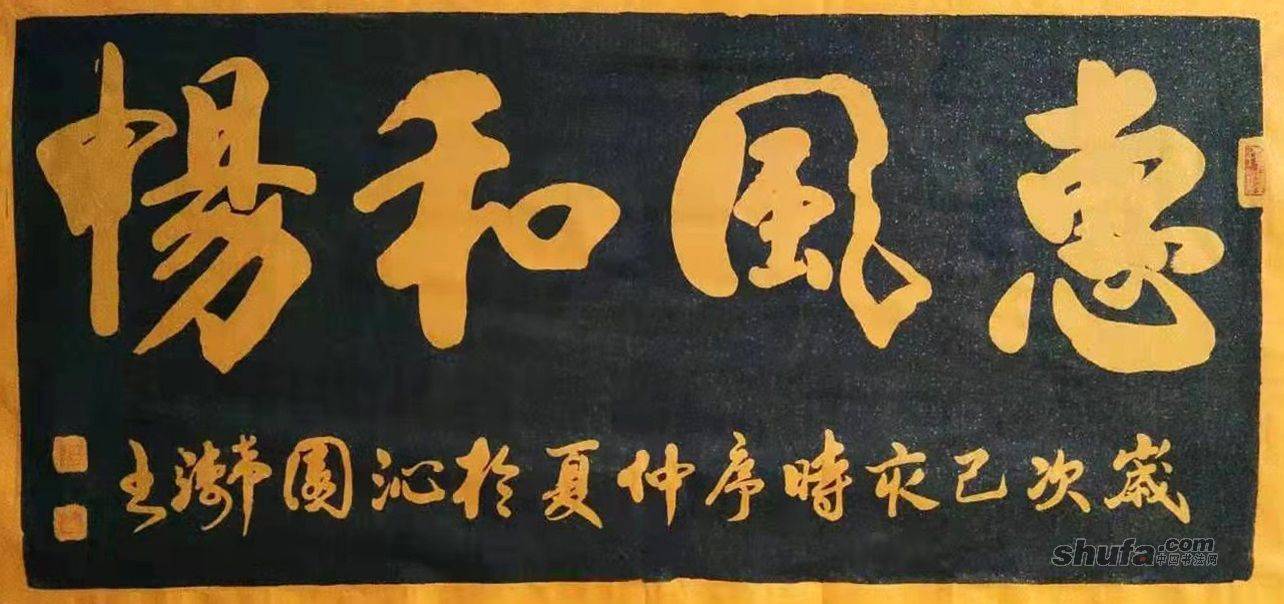 惠風和暢
歲次己亥時序仲夏於沁園書
shufa.com
中国书法网